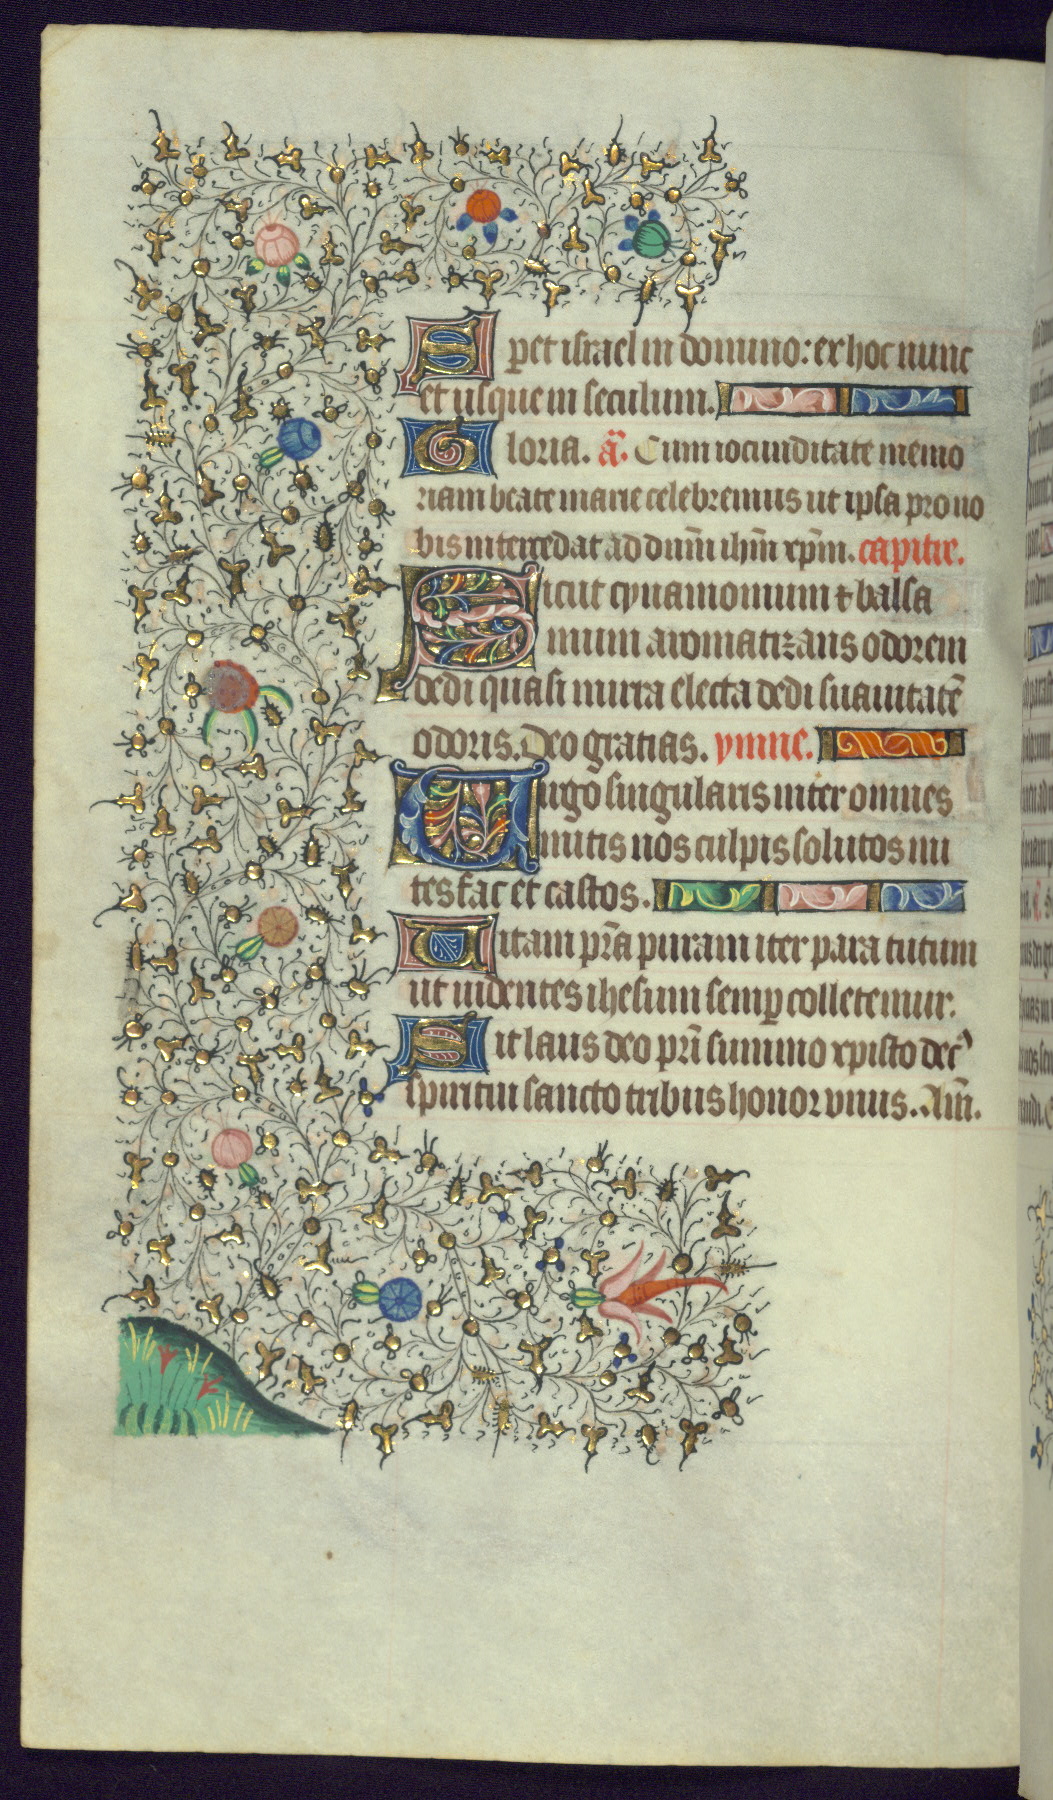 Speret israel in domino: ex hoc nunc
et usque in seculum.
Gloria. a͞. Cum iocunditate memo
riam beate marie celebremus ut ipsa pro no
bis intercedat ad dnm̄ ihm̄ xpm̄. capitle.
Sicut cynamomum ⁊ balsa
mum aromatizans odorem
dedi quasi mirra electa dedi suauitatē
odoris. Deo gratias. ymne.
Uirgo singularis inter omnes
mitis nos culpis solutos mi
tes fac et castos.
Uitam prā puram iter para tutum
ut uidentes ihesum semp̄ colletemur.
Sit laus deo pri̅ summo xpisto dec̄
spiritui sancto tribus honor vnus. Am̄.